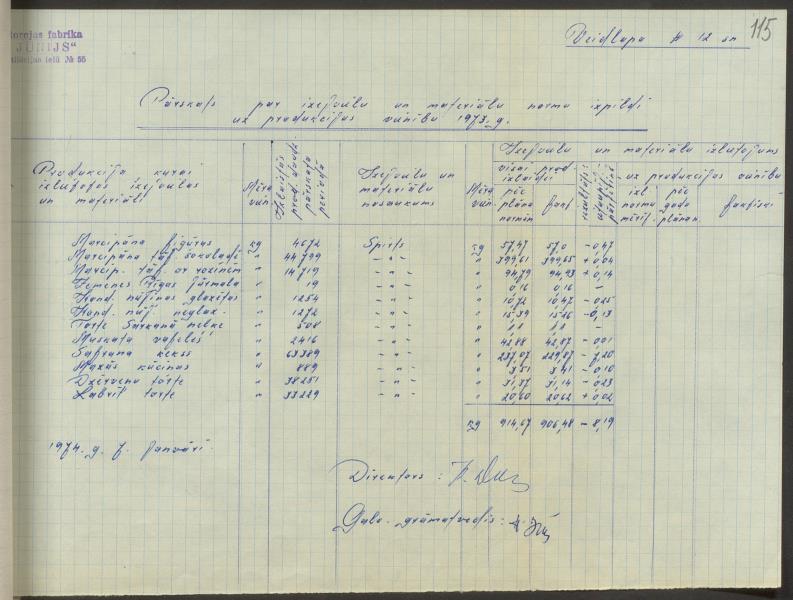 115
fabrika
"JŪNIJS"
ielā № 55
Veidlapa # 12 sn
Pārskats par izejvielu un materiālu normu izpildi
uz produkcijas vienību 1973. g.
Produkcija kurai
izlietotas izejvielas
un materiāli
Mērv. vien.
Izlaistās prod. daudz. pārskata periodā
Izejvielu un
materiālu
nosaukums
Mērv. vien.
Izejvielu un materiālu izlietojums
visai prod. izlaidei
pēc plāna normām
Fakt.
rezultāts: ekonomija pārtēriņš
uz produkcijas vienību
izl. norma mērīt.
pēc gada plānam
faktiski
Marcipāna figūras kg 4672 Spirts kg 57,47 57,0 -0,47
Marcipāna tāf. šokolādē " 44799 - " - " 399,61 399,65 +0,04
Marcip. tāf. ar rozīnēm " 14719 - " - " 94,79 94,93 +0,14
Zemenes Rīgas Jūrmala " 19 - " - " 0,16 0,16 -
Kond. glazētas " 1254 - " - " 10,72 10,47 -0,25
Kond. neglaz. " 1272 - " - " 15,39 15,26 -0,13
Torte Sarkanā nelke " 508 - " - " 1,1 1,1 -
Muskata vafeles " 2416 - " - " 42,88 42,87 -0,01
Safrana kekss " 63389 - " - " 237,07 229,87 -7,20
Mazās kūciņas " 889 - " - " 3,51 3,41 -0,10
Dzērveņu torte " 38251 - " - " 31,37 31,14 -0,23
torte " 33229 - " - " 20,60 20,62 +0,02
kg 914,67 906,48 -8,19
1974. g. 7. Janvārī.
Direktors:
Galv. grāmatvedis: